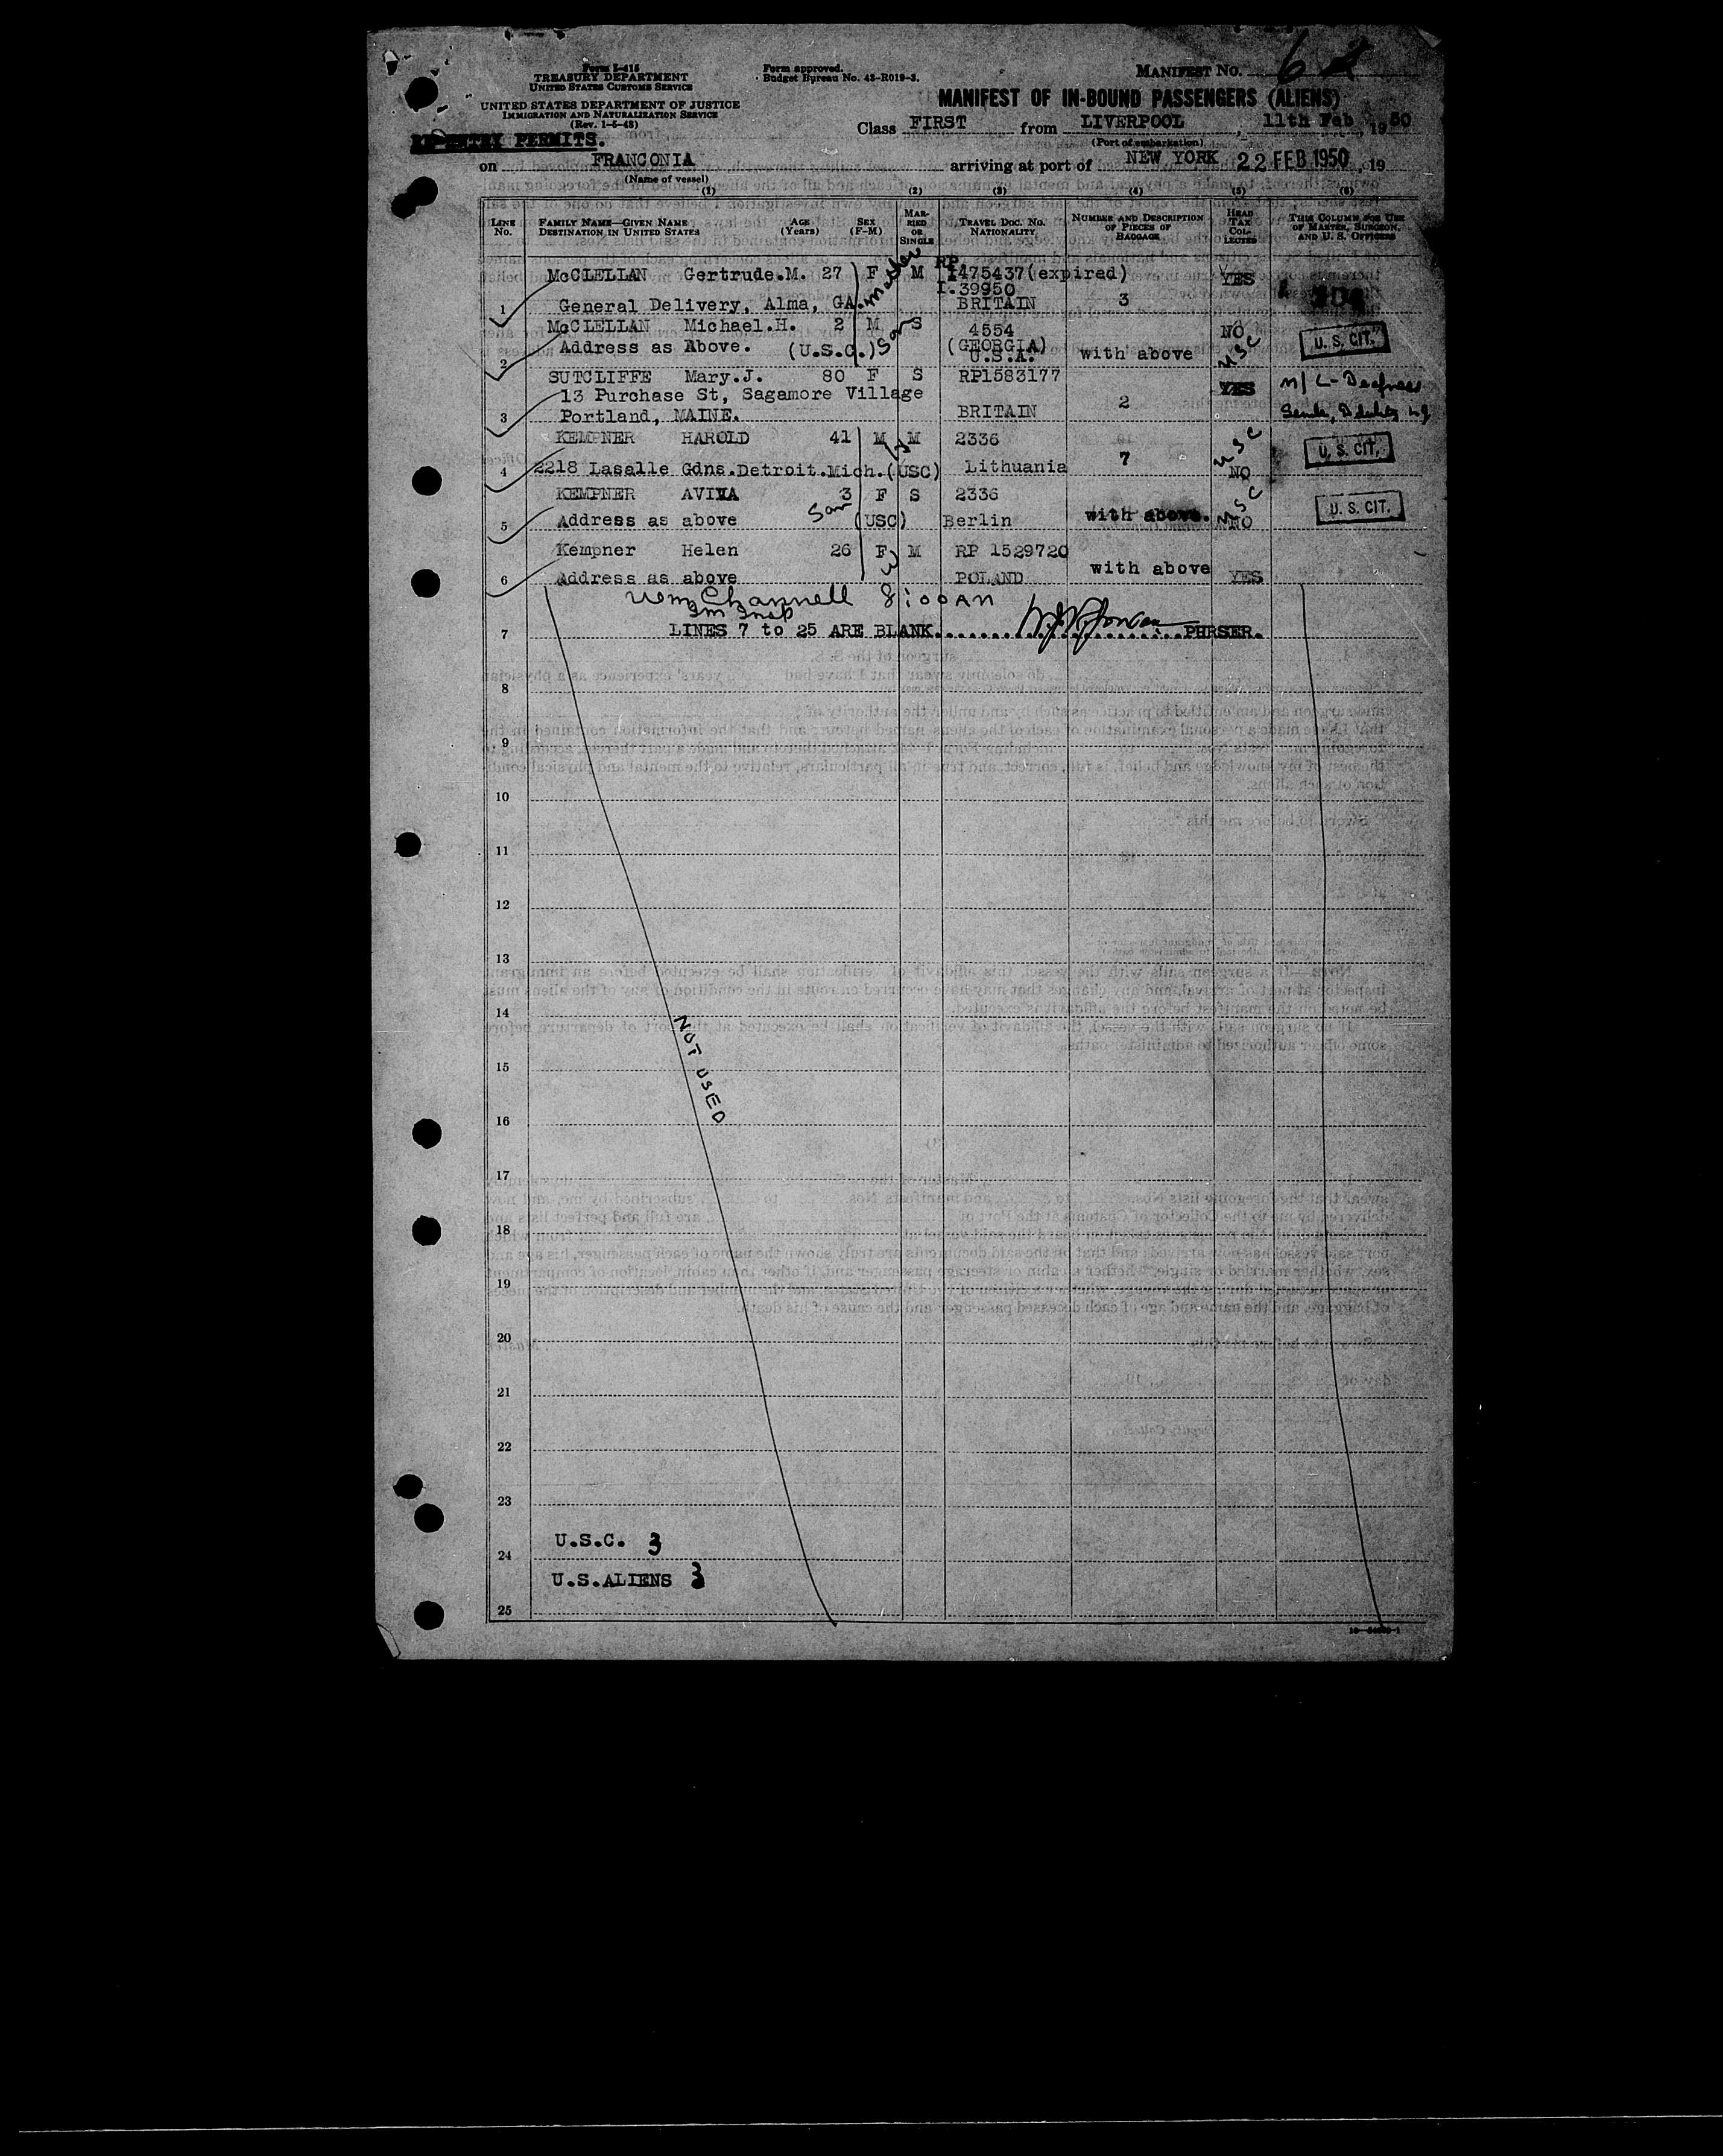 Form I-415
TREASURY DEPARTMENT
UNITED STATES CUSTOMS SERVICE
UNITED STATES DEPARTMENT OF JUSTICE
IMMIGRATION AND NATURALIZATION SERVICE
(Rev. 1-6-48)
Form approved.
Budget Bureau No. 43-R019-3.
MANIFEST NO. 62
MANIFEST OF IN-BOUND PASSENGERS (ALIENS)
Class FIRST from LIVERPOOL, 11th Feb, 1950
(Port of embarkation)
RE-ENTRY PERMITS.
on FRANCONIA arriving at port of NEW YORK 22 FEB 1950, 19
(Name of vessel)
(1) (2) (3) (4) (5) (6)
LINE NO. FAMILY NAME—GIVEN NAME DESTINATION IN UNITED STATES AGE (Years) SEX (F-M) MARRIED OR SINGLE TRAVEL DOC. NO. NATIONALITY NUMBER AND DESCRIPTION OF PIECES OF BAGGAGE HEAD TAX COLLECTED THIS COLUMN FOR USE OF MASTER, SURGEON, AND U. S. OFFICERS
RP
McCLELLAN Gertrude.M. 27 F mother M I475437(expired) YES
I.39950
1 General Delivery, Alma, GA. BRITAIN 3
McCLELLAN Michael.H. 2 M Son S 4554 NO
Address as Above. (U.S.C.) (GEORGIA) USC U. S. CIT.
2 U.S.A. with above
SUTCLIFFE Mary.J. 80 F S RP1583177 YES
13 Purchase St, Sagamore Village 2
3 Portland, MAINE. BRITAIN
KEMPNER HAROLD 41 M M 2336 USC U. S. CIT.
4 2218 Lasalle Gdns.Detroit.Mich.(USC) Lithuania 7 NO
KEMPNER AVIVA 3 F S 2336 USC U. S. CIT.
5 Address as above (USC) Berlin with above. NO
Kempner Helen 26 F M RP 1529720
6 Address as above POLAND with above YES
Wm Channell 8:00 AM
Im Insp
7 LINES 7 to 25 ARE BLANK. PURSER.
8
9
10
11
12
13
14
NOT USED
15
16
17
18
19
20
21
22
23
U.S.C. 3
24
U.S.ALIENS 3
25